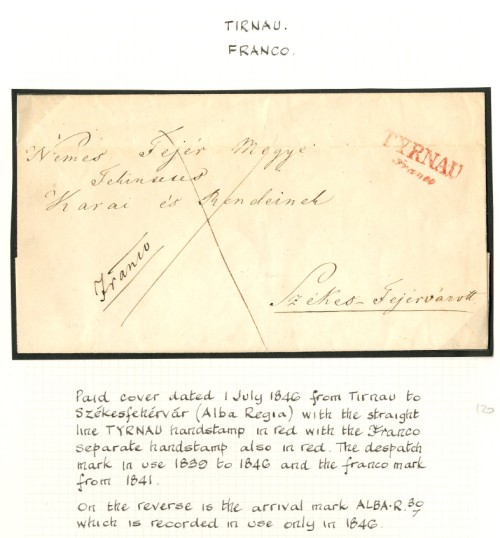 TIRNAU.
FRANCO.
Nemes Fejér Megye
Tekintetes
Karai és Rendeinek
TYRNAU
Franco
Franco
Székes-Fejérvárott
Paid cover dated 1 July 1846 from Tirnau to
Székesfehérvár (Alba Regia) with the straight
line TYRNAU handstamp in red with the Franco
separate handstamp also in red. The despatch
mark in use 1839 to 1846 and the franco mark
from 1841.
120
On the reverse is the arrival mark ALBA.R. 30/7
which is recorded in use only in 1846.